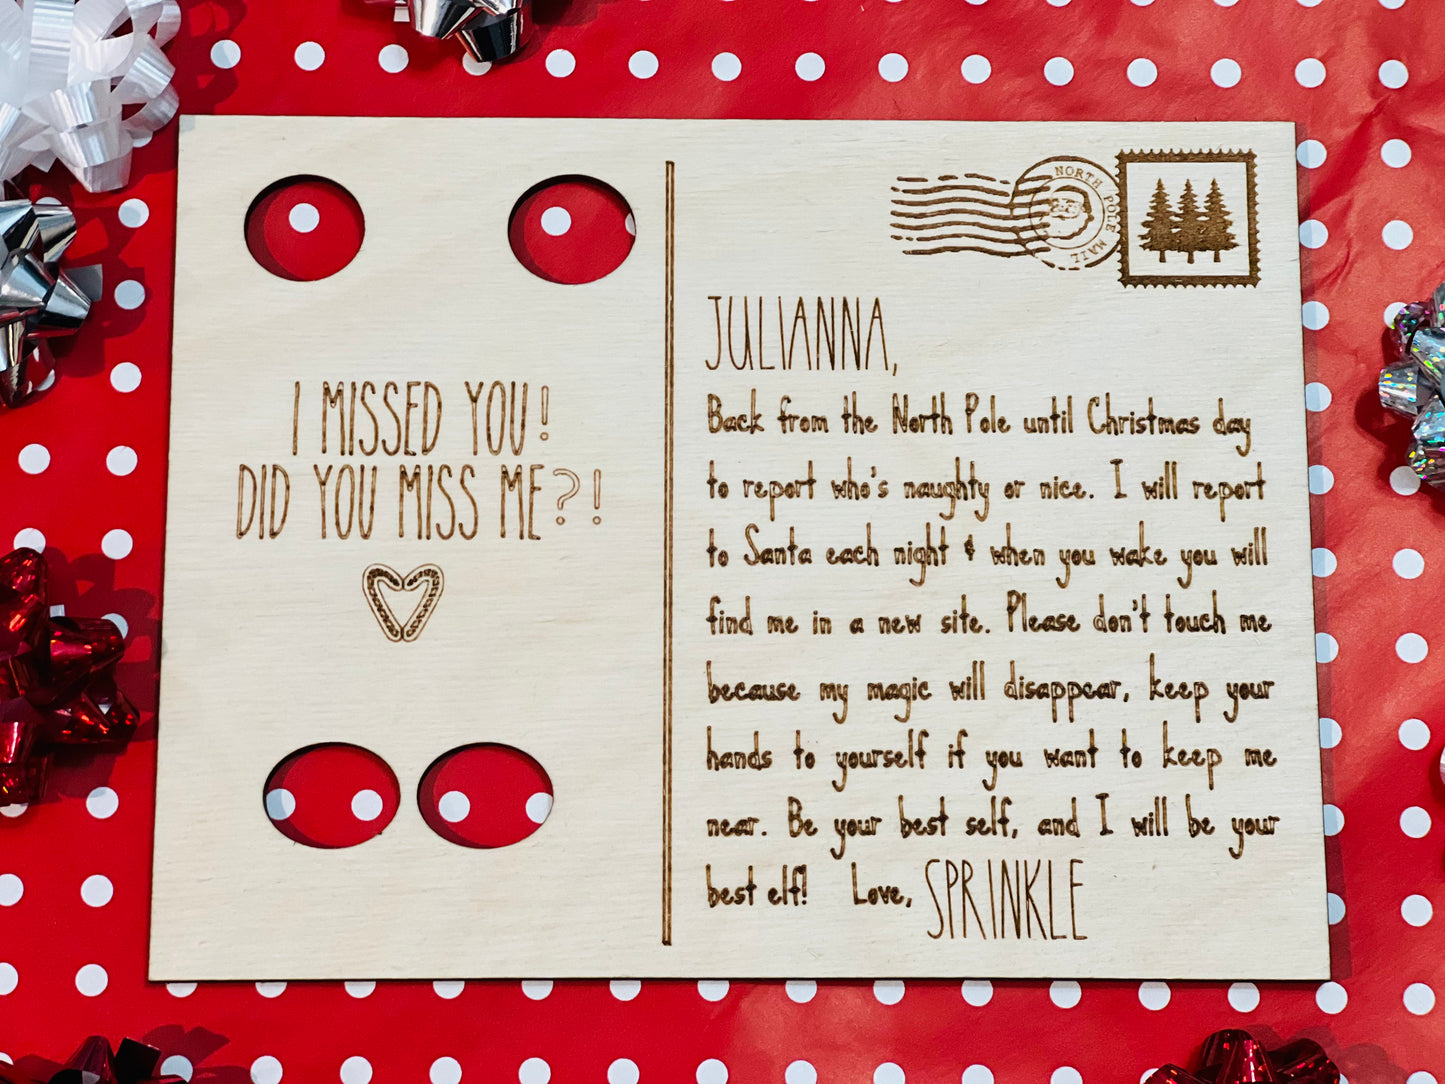 I MISSED YOU!
DID YOU MISS ME?!
NORTH POLE MAIL
JULIANNA,
Back from the North Pole until Christmas day
to report who's naughty or nice. I will report
to Santa each night & when you wake you will
find me in a new site. Please don't touch me
because my magic will disappear, keep your
hands to yourself if you want to keep me
near. Be your best self, and I will be your
best elf! Love, SPRINKLE